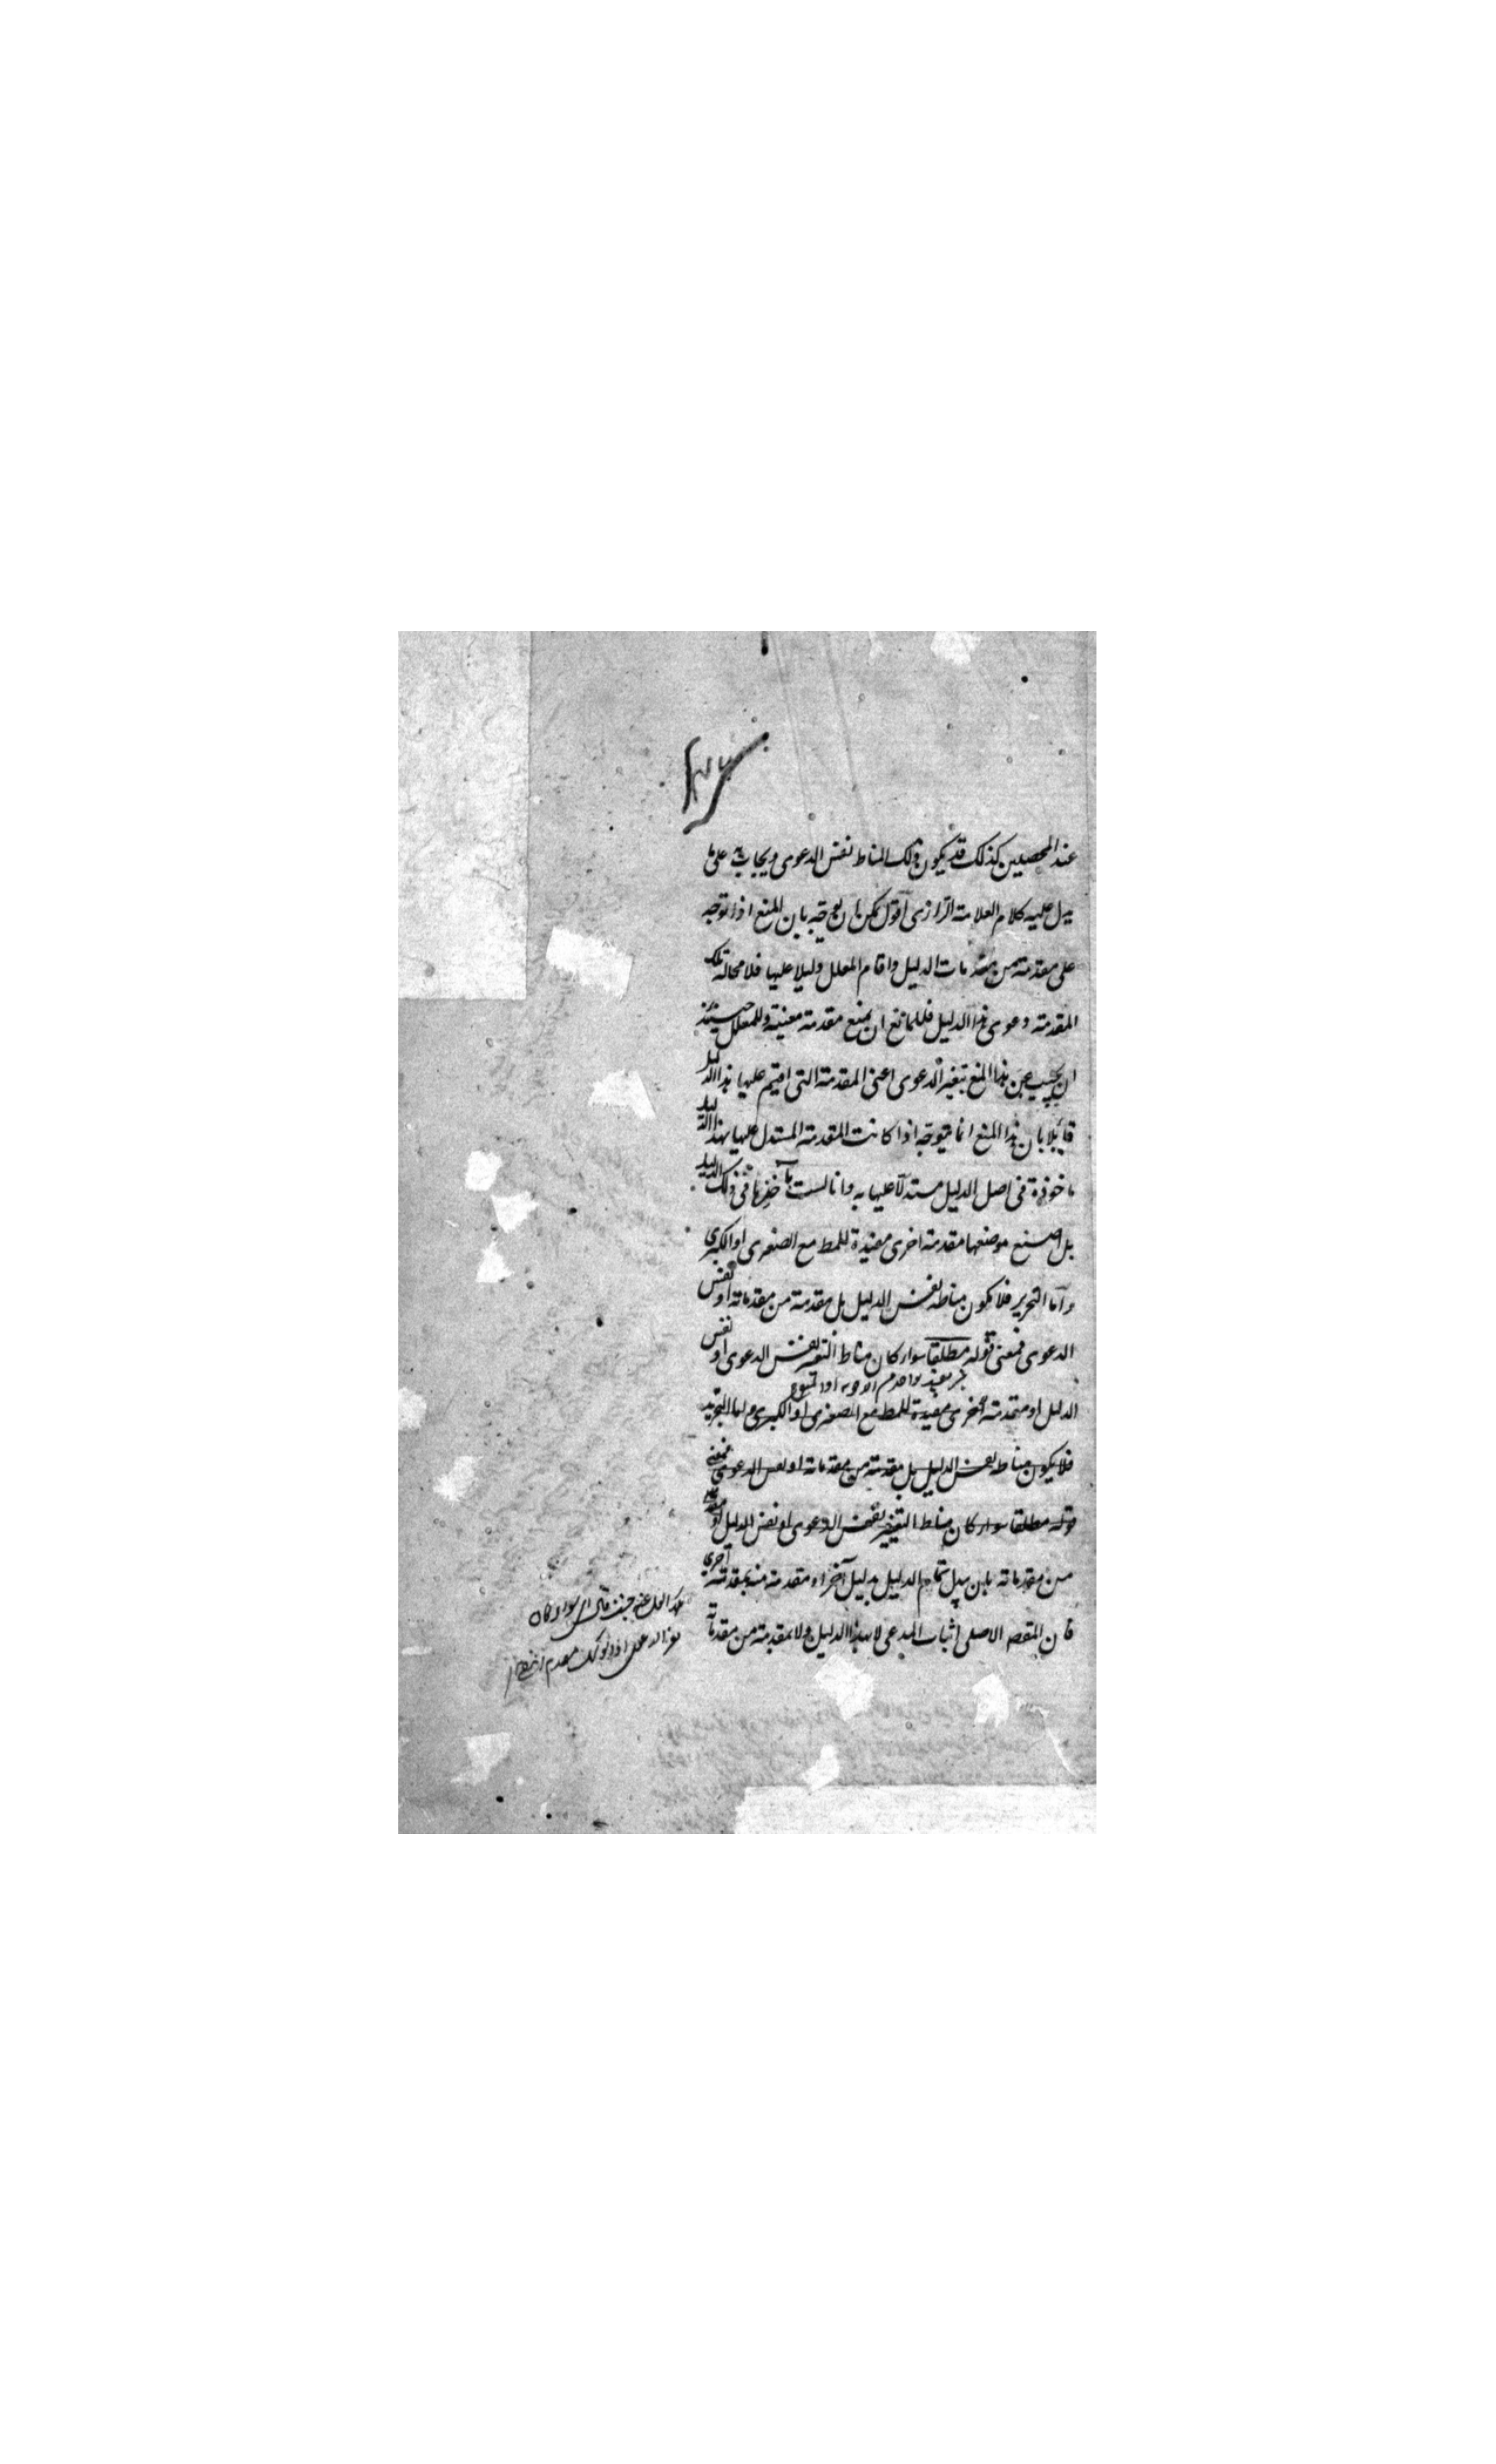 عند المحصلين كذلك قد يكون ذلك المناط نفس الدعوى ويجاب به على ما
يدل عليه كلام العلامة الرازى أقول يمكن ان يوجه بان المنع اذا توجه
على مقدمة من مقدمات الدليل واقام المعلل دليلا عليها فلا محالة تلك
المقدمة دعوى هذا الدليل فللمانع ان يمنع مقدمة معينة وللمعلل حينئذ
ان يجيب عن هذا المنع بتغير الدعوى اعنى المقدمة التى اقيم عليها هذا الدليل
قائلا بان هذا المنع انما يتوجه اذا كانت المقدمة المستدل عليها بهذا الدليل
ماخوذة فى اصل الدليل مستدلا عليها به وانا لست بآخذها فى ذلك الدليل
بل اصنع موضعها مقدمة اخرى مفيدة للمط مع الصغرى او الكبرى
واما التحرير فلا يكون مناطه نفس الدليل بل مقدمة من مقدماته او نفس
الدعوى فمعنى قوله مطلقا سواء كان مناط التغير نفس الدعوى او نفس
الدليل او مقدمة اخرى مفيدة للمط مع الصغرى او الكبرى واما التحرير
فلا يكون مناطه نفس الدليل بل مقدمة من مقدماته او نفس الدعوى فمعنى
قوله مطلقا سواء كان مناط التغير نفس الدعوى او نفس الدليل او مقدمة
من مقدماته بان يبدل تمام الدليل بدليل آخر او مقدمة منه بمقدمة اخرى
فان المقصر الاصلى اثبات المدعى لا بهذا الدليل ولا بمقدمة من مقدماته